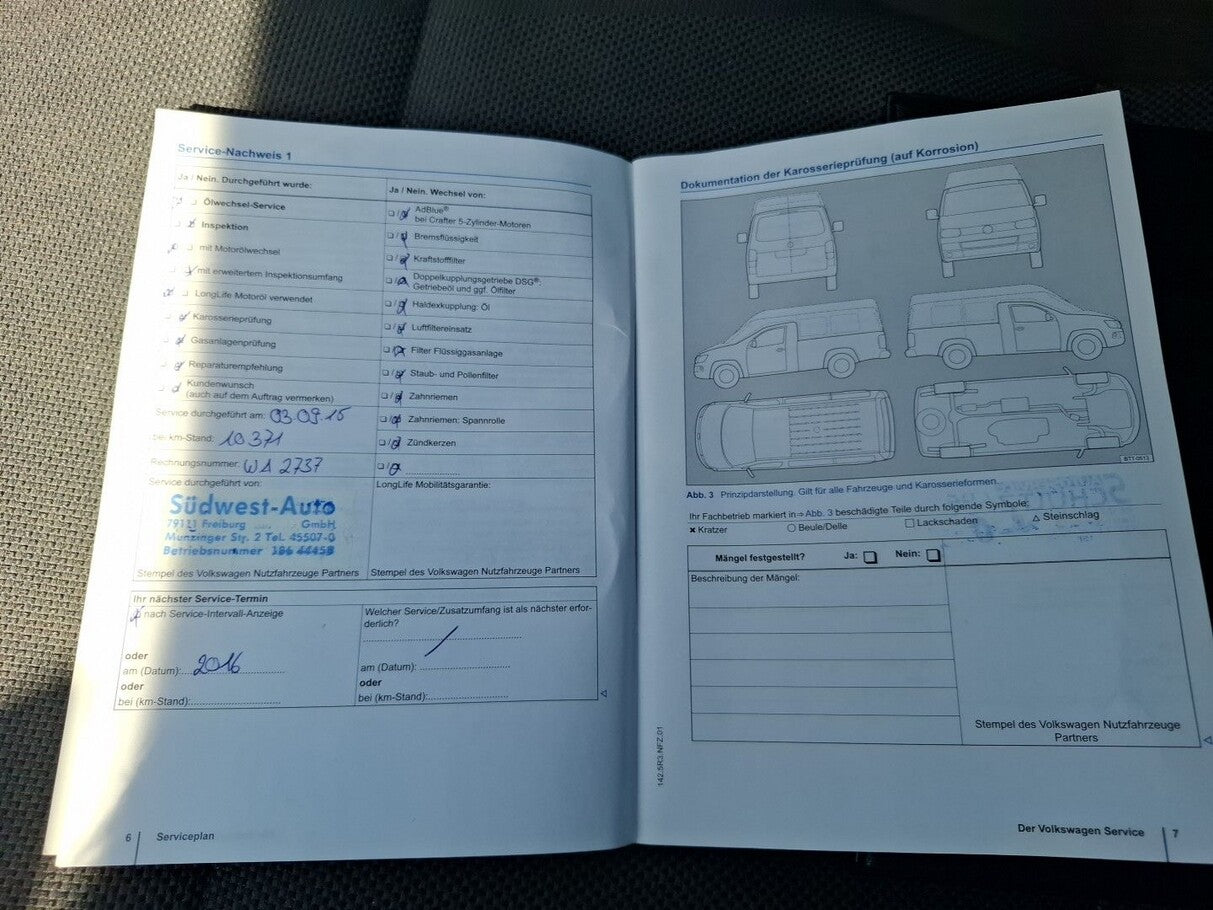 Service-Nachweis 1
Ja / Nein. Durchgeführt wurde:
Ölwechsel-Service
Inspektion
mit Motorölwechsel
mit erweitertem Inspektionsumfang
LongLife Motoröl verwendet
Karosserieprüfung
Gasanlagenprüfung
Reparaturempfehlung
Kundenwunsch
(auch auf dem Auftrag vermerken)
Service durchgeführt am: 03.09.15
bei km-Stand: 10371
Rechnungsnummer: WA 2737
Service durchgeführt von:
Südwest-Auto
79111 Freiburg GmbH
Munzinger Str. 2 Tel. 45507-0
Betriebsnummer 186 44458
Stempel des Volkswagen Nutzfahrzeuge Partners
Ja / Nein. Wechsel von:
AdBlue®
bei Crafter 5-Zylinder-Motoren
Bremsflüssigkeit
Kraftstofffilter
Doppelkupplungsgetriebe DSG®:
Getriebeöl und ggf. Ölfilter
Haldexkupplung: Öl
Luftfiltereinsatz
Filter Flüssiggasanlage
Staub- und Pollenfilter
Zahnriemen
Zahnriemen: Spannrolle
Zündkerzen
LongLife Mobilitätsgarantie:
Stempel des Volkswagen Nutzfahrzeuge Partners
Ihr nächster Service-Termin
nach Service-Intervall-Anzeige
oder
am (Datum): 2016
oder
bei (km-Stand):
Welcher Service/Zusatzumfang ist als nächster erfor-
derlich?
am (Datum):
oder
bei (km-Stand):
6 Serviceplan
Dokumentation der Karosserieprüfung (auf Korrosion)
BTT-0513
Abb. 3 Prinzipdarstellung. Gilt für alle Fahrzeuge und Karosserieformen.
Ihr Fachbetrieb markiert in ⇒ Abb. 3 beschädigte Teile durch folgende Symbole:
✖ Kratzer ○ Beule/Delle □ Lackschaden △ Steinschlag
Mängel festgestellt? Ja: Nein:
Beschreibung der Mängel:
Stempel des Volkswagen Nutzfahrzeuge
Partners
142.5R3.NFZ.01
Der Volkswagen Service 7